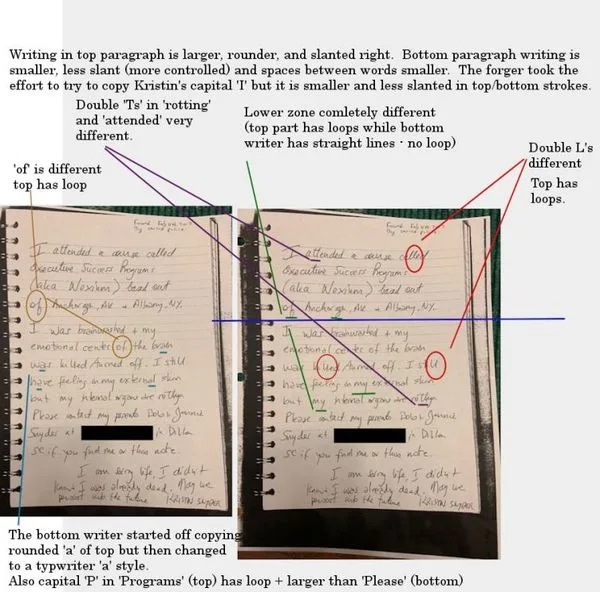 Writing in top paragraph is larger, rounder, and slanted right. Bottom paragraph writing is
smaller, less slant (more controlled) and spaces between words smaller. The forger took the
effort to try to copy Kristin's capital 'I' but it is smaller and less slanted in top/bottom strokes.
Double 'Ts' in 'rotting'
and 'attended' very
different.
Lower zone comletely different
(top part has loops while bottom
writer has straight lines - no loop)
Double L's
different
Top has
loops.
'of' is different
top has loop
Found
I attended a course called
Executive Success Programs
(aka Nexivm) based out
of Anchorage, AK + Albany, NY.
I was brainwashed + my
emotional center of the brain
was killed/turned off. I still
have feeling in my external skin
but my internal organs are rotting.
Please contact my parents
Snyder at in Dillon
SC if you find me or this note.
I am sorry life, I didn't
know I was already dead. May we
persist into the future
KRISTIN SNYDER
Found
I attended a course called
Executive Success Programs
(aka Nexivm) based out
of Anchorage, AK + Albany, NY.
I was brainwashed + my
emotional center of the brain
was killed/turned off. I still
have feeling in my external skin
but my internal organs are rotting.
Please contact my parents
Snyder at in Dillon
SC if you find me or this note.
I am sorry life, I didn't
know I was already dead. May we
persist into the future
KRISTIN SNYDER
The bottom writer started off copying
rounded 'a' of top but then changed
to a typewriter 'a' style.
Also capital 'P' in 'Programs' (top) has loop + larger than 'Please' (bottom)